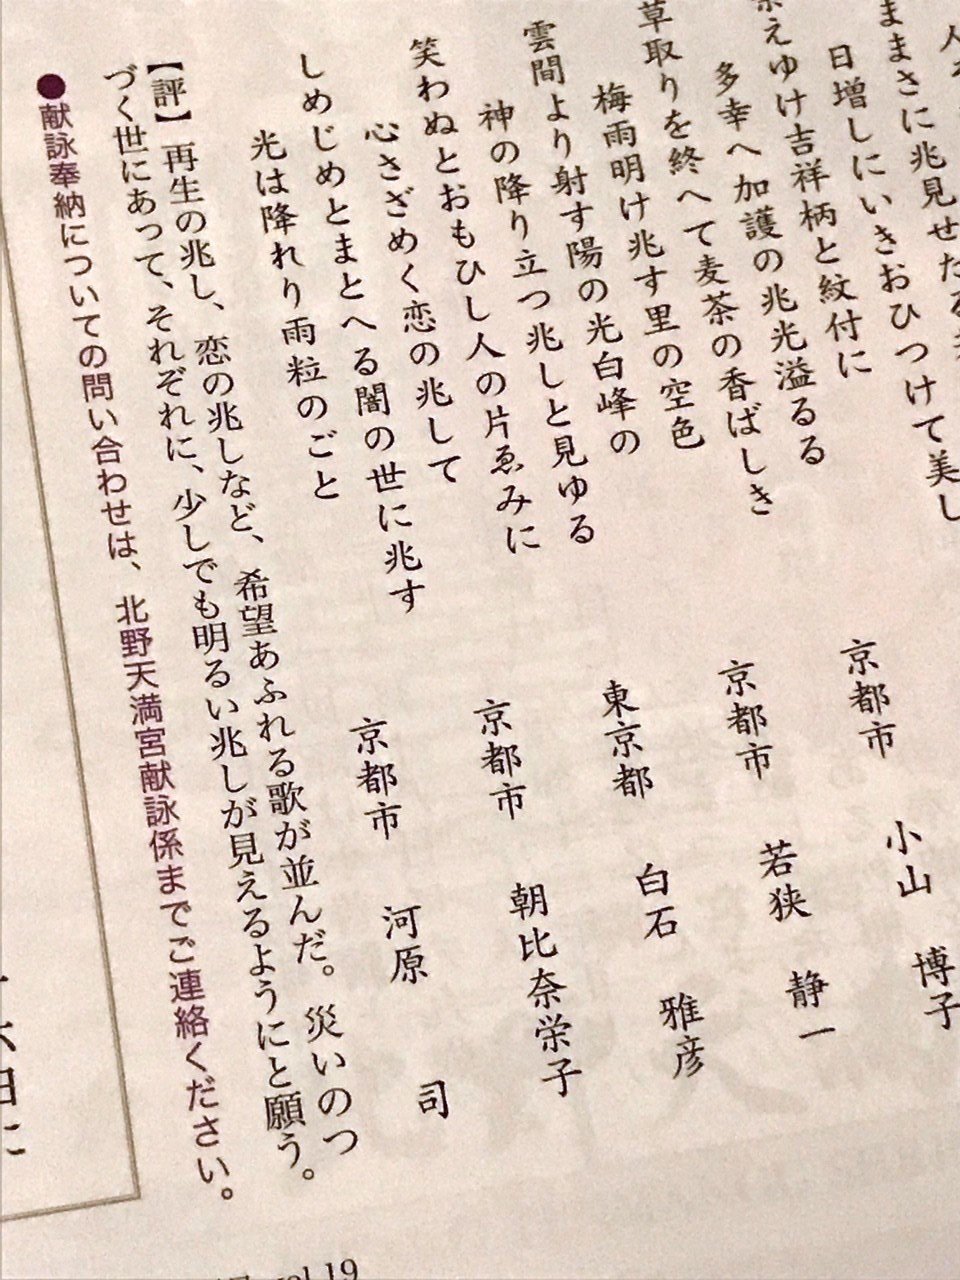 まさに兆見せたる
日増しにいきおひつけて美し
えゆけ吉祥柄と紋付に
多幸へ加護の兆光溢るる 京都市 小山 博子
草取りを終へて麦茶の香ばしき
梅雨明け兆す里の空色 京都市 若狭 静一
雲間より射す陽の光白峰の
神の降り立つ兆しと見ゆる 東京都 白石 雅彦
笑わぬとおもひし人の片ゑみに
心さざめく恋の兆して 京都市 朝比奈栄子
しめじめとまとへる闇の世に兆す
光は降れり雨粒のごと 京都市 河原 司
【評】再生の兆し、恋の兆しなど、希望あふれる歌が並んだ。災いのつ
づく世にあって、それぞれに、少しでも明るい兆しが見えるようにと願う。
●献詠奉納についての問い合わせは、北野天満宮献詠係までご連絡ください。
日に
vol.19